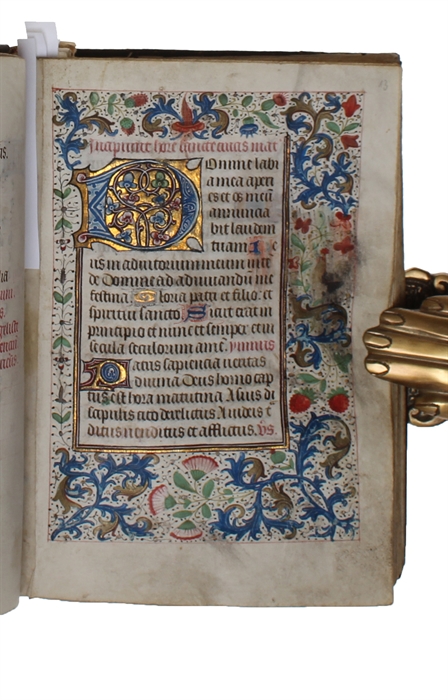 Incipiunt hore sancte crucis mat
Domine labi
a mea aperi
es et os meū
annuncia
bit laudem
tuam. De
us in adiutorium meum inte
de Domine ad adiuuandū me
festina. Gloria patri et filio: et
spiritui sancto. Sicut erat in
principio et nunc et semper et in
secula seculorum amē. ymnus
Patris sapiencia ueritas
diuina Deus homo cap
tus est hora matutina A suis di
scipulis cito derelictus A iudeis
ditus uenditus et afflictus. Vs.